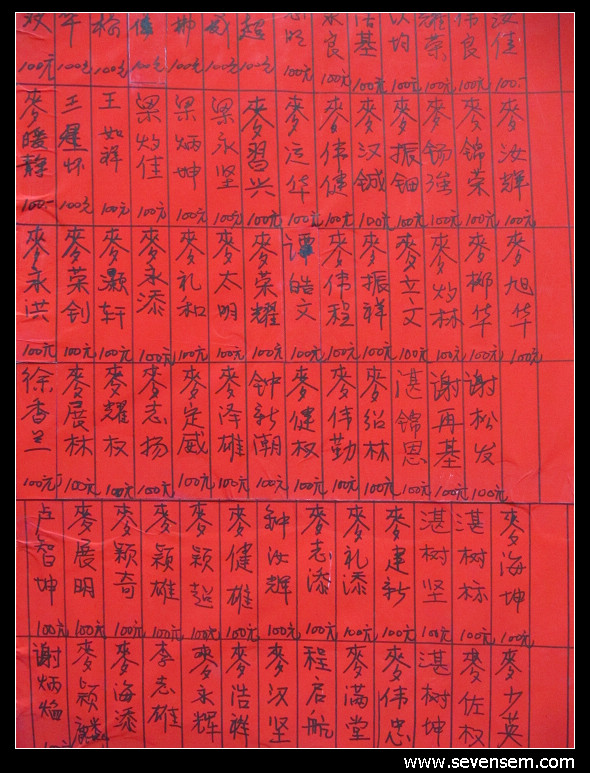 100元
100元
100元
100元
100元
100元
100元
100元
良
100元
基
100元
均
100元
荣
100元
良
100元
汝佳
100-
麥暖静
100-
王星怀
100元
王如祥
100元
梁灼佳
100元
梁炳坤
100元
梁永坚
100元
麥習兴
100元
麥运华
100元
麥伟健
100元
麥汉铖
100元
麥振钿
100元
麥锡强
100元
麥锦荣
100元
麥汝輝
100元
麥永洪
100元
麥荣钊
100元
麥颢轩
100元
麥永添
100元
麥礼和
100元
麥太明
100元
麥荣耀
100元
谭皓文
100元
麥伟程
100元
麥振祥
100元
麥立文
100元
麥灼林
100元
麥柳华
100元
麥旭华
100元
徐香兰
100元
麥展林
100元
麥耀权
100元
麥志扬
100元
麥定威
100元
麥泽雄
100元
钟新潮
100元
麥健权
100元
麥伟勤
100元
麥绍林
100元
湛锦恩
100元
谢再基
100元
谢松发
100元
卢智坤
100元
麥展明
100元
麥颖奇
100元
麥颖雄
100元
麥颖超
100元
麥健雄
100元
钟汝輝
100元
麥志添
100元
麥礼添
100元
麥建新
100元
湛树坚
100元
湛树标
100元
麥海坤
100元
谢炳焰
100元
麥颖麟
麥海添
李志雄
麥永辉
麥浩祥
麥汉坚
程启航
麥满堂
麥伟忠
湛树坤
麥佐权
麥少英
www.sevensem.com